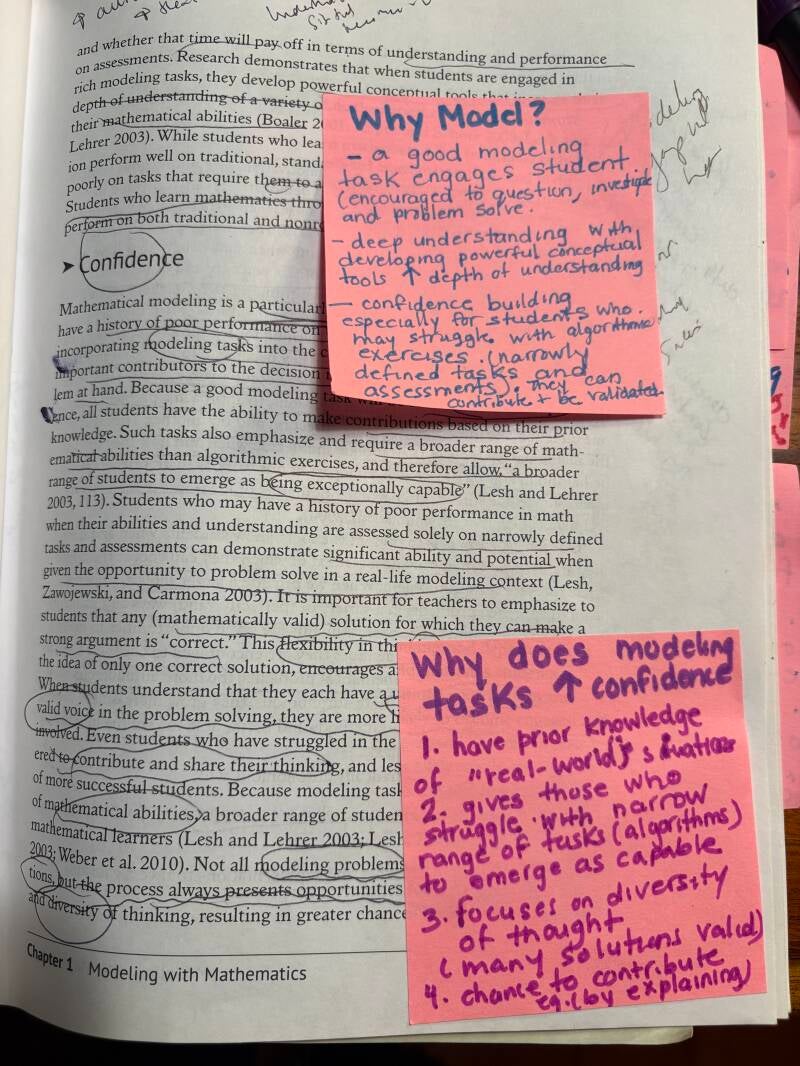 and whether that time will pay off in terms of understanding and performance
on assessments. Research demonstrates that when students are engaged in
rich modeling tasks, they develop powerful conceptual tools that
depth of understanding of a variety o
their mathematical abilities (Boaler 20
Lehrer 2003). While students who lea
ion perform well on traditional, stand
poorly on tasks that require them to a
Students who learn mathematics thro
perform on both traditional and nonro
Why Model?
- a good modeling
task engages student
(encouraged to question, investigate
and problem solve.
- deep understanding with
developing powerful conceptual
tools ↑ depth of understanding
- confidence building
especially for students who
may struggle with algorithmic
exercises. (narrowly
defined tasks and
assessments). They can
contribute + be validated
➤ Confidence
Mathematical modeling is a particularl
have a history of poor performance on
incorporating modeling tasks into the c
important contributors to the decision
lem at hand. Because a good modeling task
ence, all students have the ability to make contributions based on their prior
knowledge. Such tasks also emphasize and require a broader range of math-
ematical abilities than algorithmic exercises, and therefore allow, "a broader
range of students to emerge as being exceptionally capable" (Lesh and Lehrer
2003, 113). Students who may have a history of poor performance in math
when their abilities and understanding are assessed solely on narrowly defined
tasks and assessments can demonstrate significant ability and potential when
given the opportunity to problem solve in a real-life modeling context (Lesh,
Zawojewski, and Carmona 2003). It is important for teachers to emphasize to
students that any (mathematically valid) solution for which they can make a
strong argument is "correct." This flexibility in thi
the idea of only one correct solution, encourages a
When students understand that they each have a u
valid voice in the problem solving, they are more li
involved. Even students who have struggled in the
ered to contribute and share their thinking, and les
of more successful students. Because modeling task
of mathematical abilities, a broader range of studen
mathematical learners (Lesh and Lehrer 2003; Lesh
2003; Weber et al. 2010). Not all modeling problems
tions, but the process always presents opportunities
and diversity of thinking, resulting in greater chance
Why does modeling
tasks ↑ confidence
1. have prior knowledge
of "real-world" situations
2. gives those who
struggle with narrow
range of tasks (algorithms)
to emerge as capable
3. focuses on diversity
of thought
(many solutions valid)
4. chance to contribute
eg. (by explaining)
Chapter 1 Modeling with Mathematics